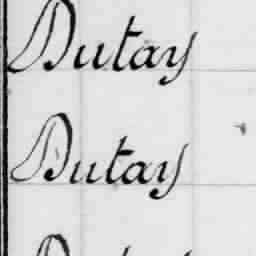 Dutay
Dutay